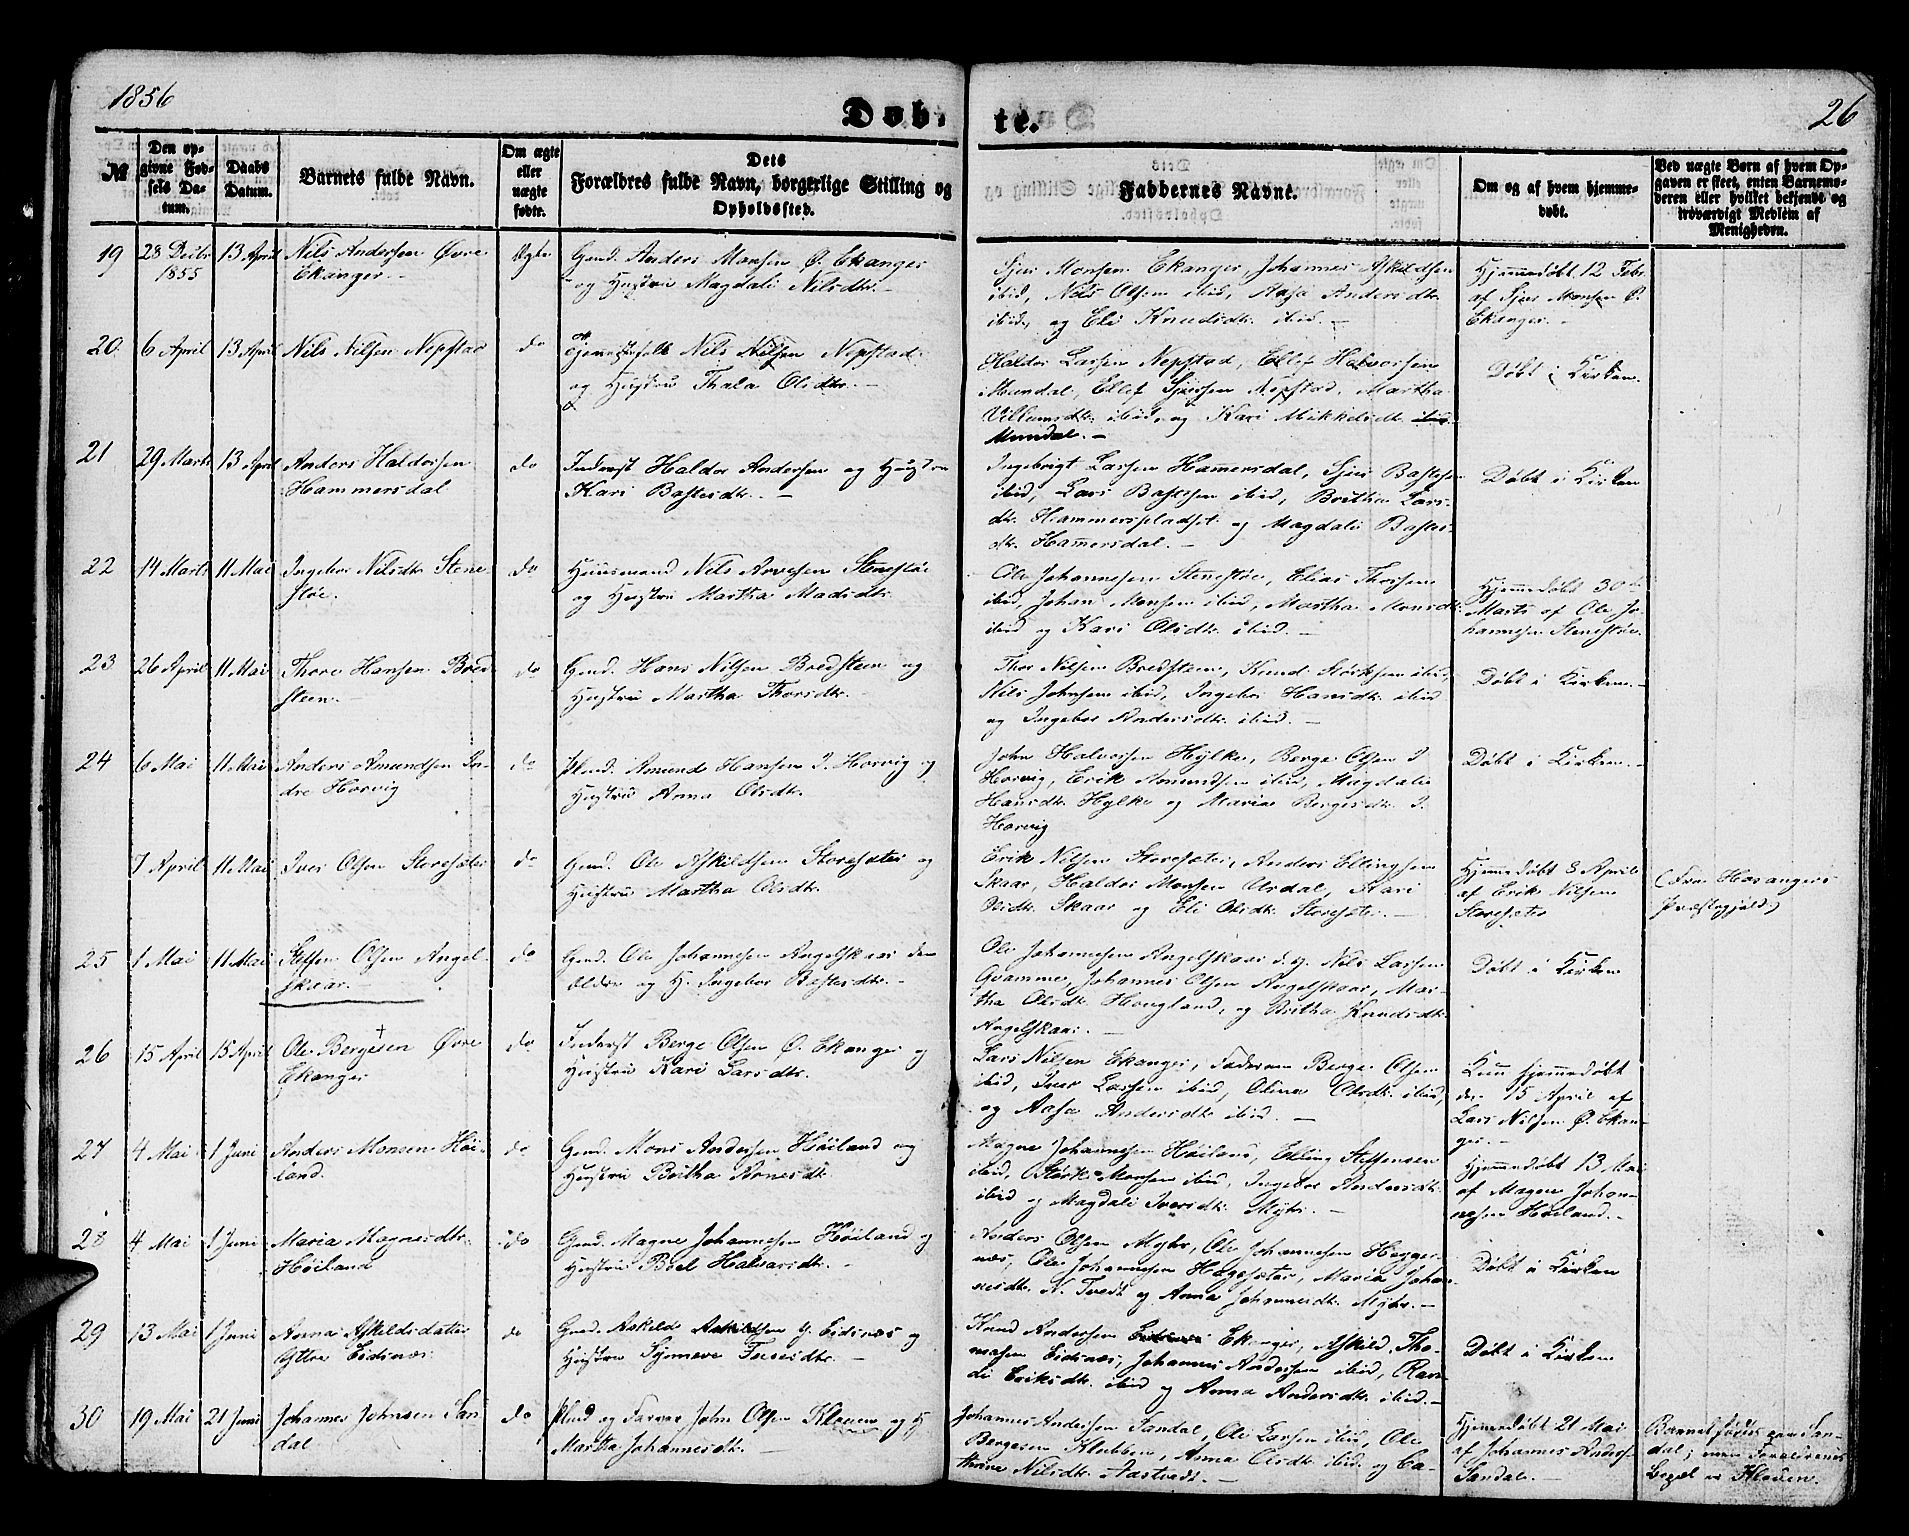 1856
Døb-
te.
26
№
Den op-
givne Fød-
sels Da-
tum.
Daabs
Datum.
Barnets fulde Navn.
Om ægte
eller
uægte
fødte.
Dets
Forældres fulde Navn, borgerlige Stilling og
Opholdssted.
Faddernes Navne.
Om og af hvem hjemme-
døbt.
Ved uægte Børn af hvem Op-
gaven er skeet, enten Barnemo-
deren eller hvilket bekjendt og
troværdigt Medlem af
Menigheden.
19
28 Decbr
1855
13 April
Nils Andersen Øvre
Ekanger.
Ægte
Gmd. Anders Monsen Ø. Ekanger
og Hustru Magdali Nilsdtr.
Sjur Monsen Ekanger, Johannes Askildsen
ibid, Nils Olsen ibid, Aasa Andersdtr.
ibid, og Eli Knudsdtr. ibid.
Hjemmedøbt 12 Febr
af Sjur Monsen Ø.
Ekanger.
20.
6 April
13 April
Nils Nilsen Nepstad
do
Tjenestefolk Nils Nilsen Nepstad
og Hustru Thala Olsdtr.
Haldor Larsen Nepstad, Ellef Halvorsen
Mundal, Ellef Sjursen Nepstad, Martha
Villumsdtr. ibid, og Kari Mikkelsdtr.
Mundal.
Døbt i Kirken.
21
29 Marts
13 April
Anders Haldorsen
Hammersdal
do
Inderst Haldor Andersen og Hustru
Kari Bastesdtr.
Ingebrigt Larsen Hamersdal, Sjur Bastesen
ibid, Lars Bastesen ibid, Britha Lars-
dtr. Hammerspladset og Magdali Bastes-
dtr. Hamersdal.
Døbt i Kirken
22
14 Marts
11 Mai
Ingebor Nilsdtr. Stene-
støe.
do
Huusmand Nils Arvesen Stenestøe
og Hustru Martha Madsdtr.
Ole Johannesen Stenestøe, Elias Thorsen
ibid, Johan Monsen ibid, Martha Monsdtr.
ibid og Kari Olsdtr. ibid.
Hjemmedøbt 30te
Marts af Ole Jo-
hannesen Stenestøe.
23
26 April
11 Mai
Thore Hansen Bred-
steen.
do
Gmd. Hans Nilsen Bredsteen og
Hustru Martha Thorsdtr.
Thor Nilsen Bredsteen, Knud Størksen ibid,
Nils Johnsen ibid, Ingebor Hansdtr. ibid
og Ingebor Andersdtr. ibid.
Døbt i Kirken.
24
6 Mai
11 Mai
Anders Amundsen In-
dre Horvig
do
Plmd. Amund Hansen I. Horvig og
Hustru Anna Olsdtr.
John Halvorsen Hylke, Berge Olsen I
Horvig, Erik Amundsen ibid, Magdali
Hansdtr. Hylke og Maria Bergesdtr. I.
Horvig
Døbt i Kirken.
7 April
11 Mai
Iver Olsen Storesæter
do
Gmd. Ole Askildsen Storesæter og
Hustru Martha Olsdtr.
Erik Nilsen Storesæter, Anders Ellingsen
Skaar, Haldor Monsen Urdal, Kari
Olsdtr. Skaar og Eli Olsdtr. Storesæter.
Hjemmedøbt 8 April
af Erik Nilsen
Storesæter
(Fra Hosangers
Præstegjæld.)
25
1 Mai
11 Mai
Steffen Olsen Angel-
skaar.
do
Gmd. Ole Johannesen Angelskaar den
ældre og H. Ingebor Bastesdtr.
Ole Johannesen Angelskaar d. y. Nils Larsen
Qvamme, Johannes Olsen Angelskaar, Mar-
tha Olsdtr. Hougland, og Britha Knudsdtr.
Angelskaar.
Døbt i Kirken
26
15 April
15 April
Ole Bergesen Øvre
Ekanger
do
Inderst Berge Olsen Ø. Ekanger og
Hustru Kari Larsdtr.
Lars Nilsen Ekanger, Faderen Berge Olsen
ibid, Iver Larsen ibid, Olina Olsdtr. ibid,
og Aasa Andersdtr. ibid.
Kun hjemmedøbt
den 15 April af
Lars Nilsen Ø. Ekan-
ger.
27
4 Mai
1 Juni
Anders Monsen Høi-
land.
do
Gmd. Mons Andersen Høiland og
Hustru Britha Arnesdtr.
Magne Johannesen Høiland, Elling Steffensen
ibid, Størk Monsen ibid, Ingebor Andersdtr.
ibid og Magdali Iversdtr. Myhr.
Hjemmedøbt 13 Mai
af Magne Johan-
nesen Høiland.
28
4 Mai
1 Juni
Maria Magnesdtr.
Høiland
do
Gmd. Magne Johannesen Høiland og
Hustru Boel Halvorsdtr.
Anders Olsen Myhr, Ole Johannesen Hegger-
næs, Ole Johannesen Hagesæter, Maria Johan-
nesdtr. N. Tvedt og Anna Johannesdtr. Myhr.
Døbt i Kirken
29
13 Mai
1 Juni
Anna Askildsdatter
Yttre Eidsnæs.
do
Gmd. Askild Askildsen Y. Eidsnæs og
Hustru Synneve Tufesdtr.
Knud Andersen Ekanger, Askild Tho-
massen Eidsnæs, Johannes Andersen ibid, Ran-
di Eriksdtr. ibid og Anna Andersdtr. ibid.
Døbt i Kirken
30
19 Mai
21 Juni
Johannes Johnsen San-
dal
do
Plmd og Farver John Olsen Klauen og H.
Martha Johannesdtr.
Johannes Andersen Sandal, Ole Larsen ibid, Ole
Bergesen Klubben, Anna Olsdtr. ibid og Ca-
thrine Nilsdtr. Aastvedt.
Hjemmedøbt 21 Mai
af Johannes Anders.
Sandal.
Barnet fødtes paa San-
dal; men Forældrenes
Bopæl er Klauen.